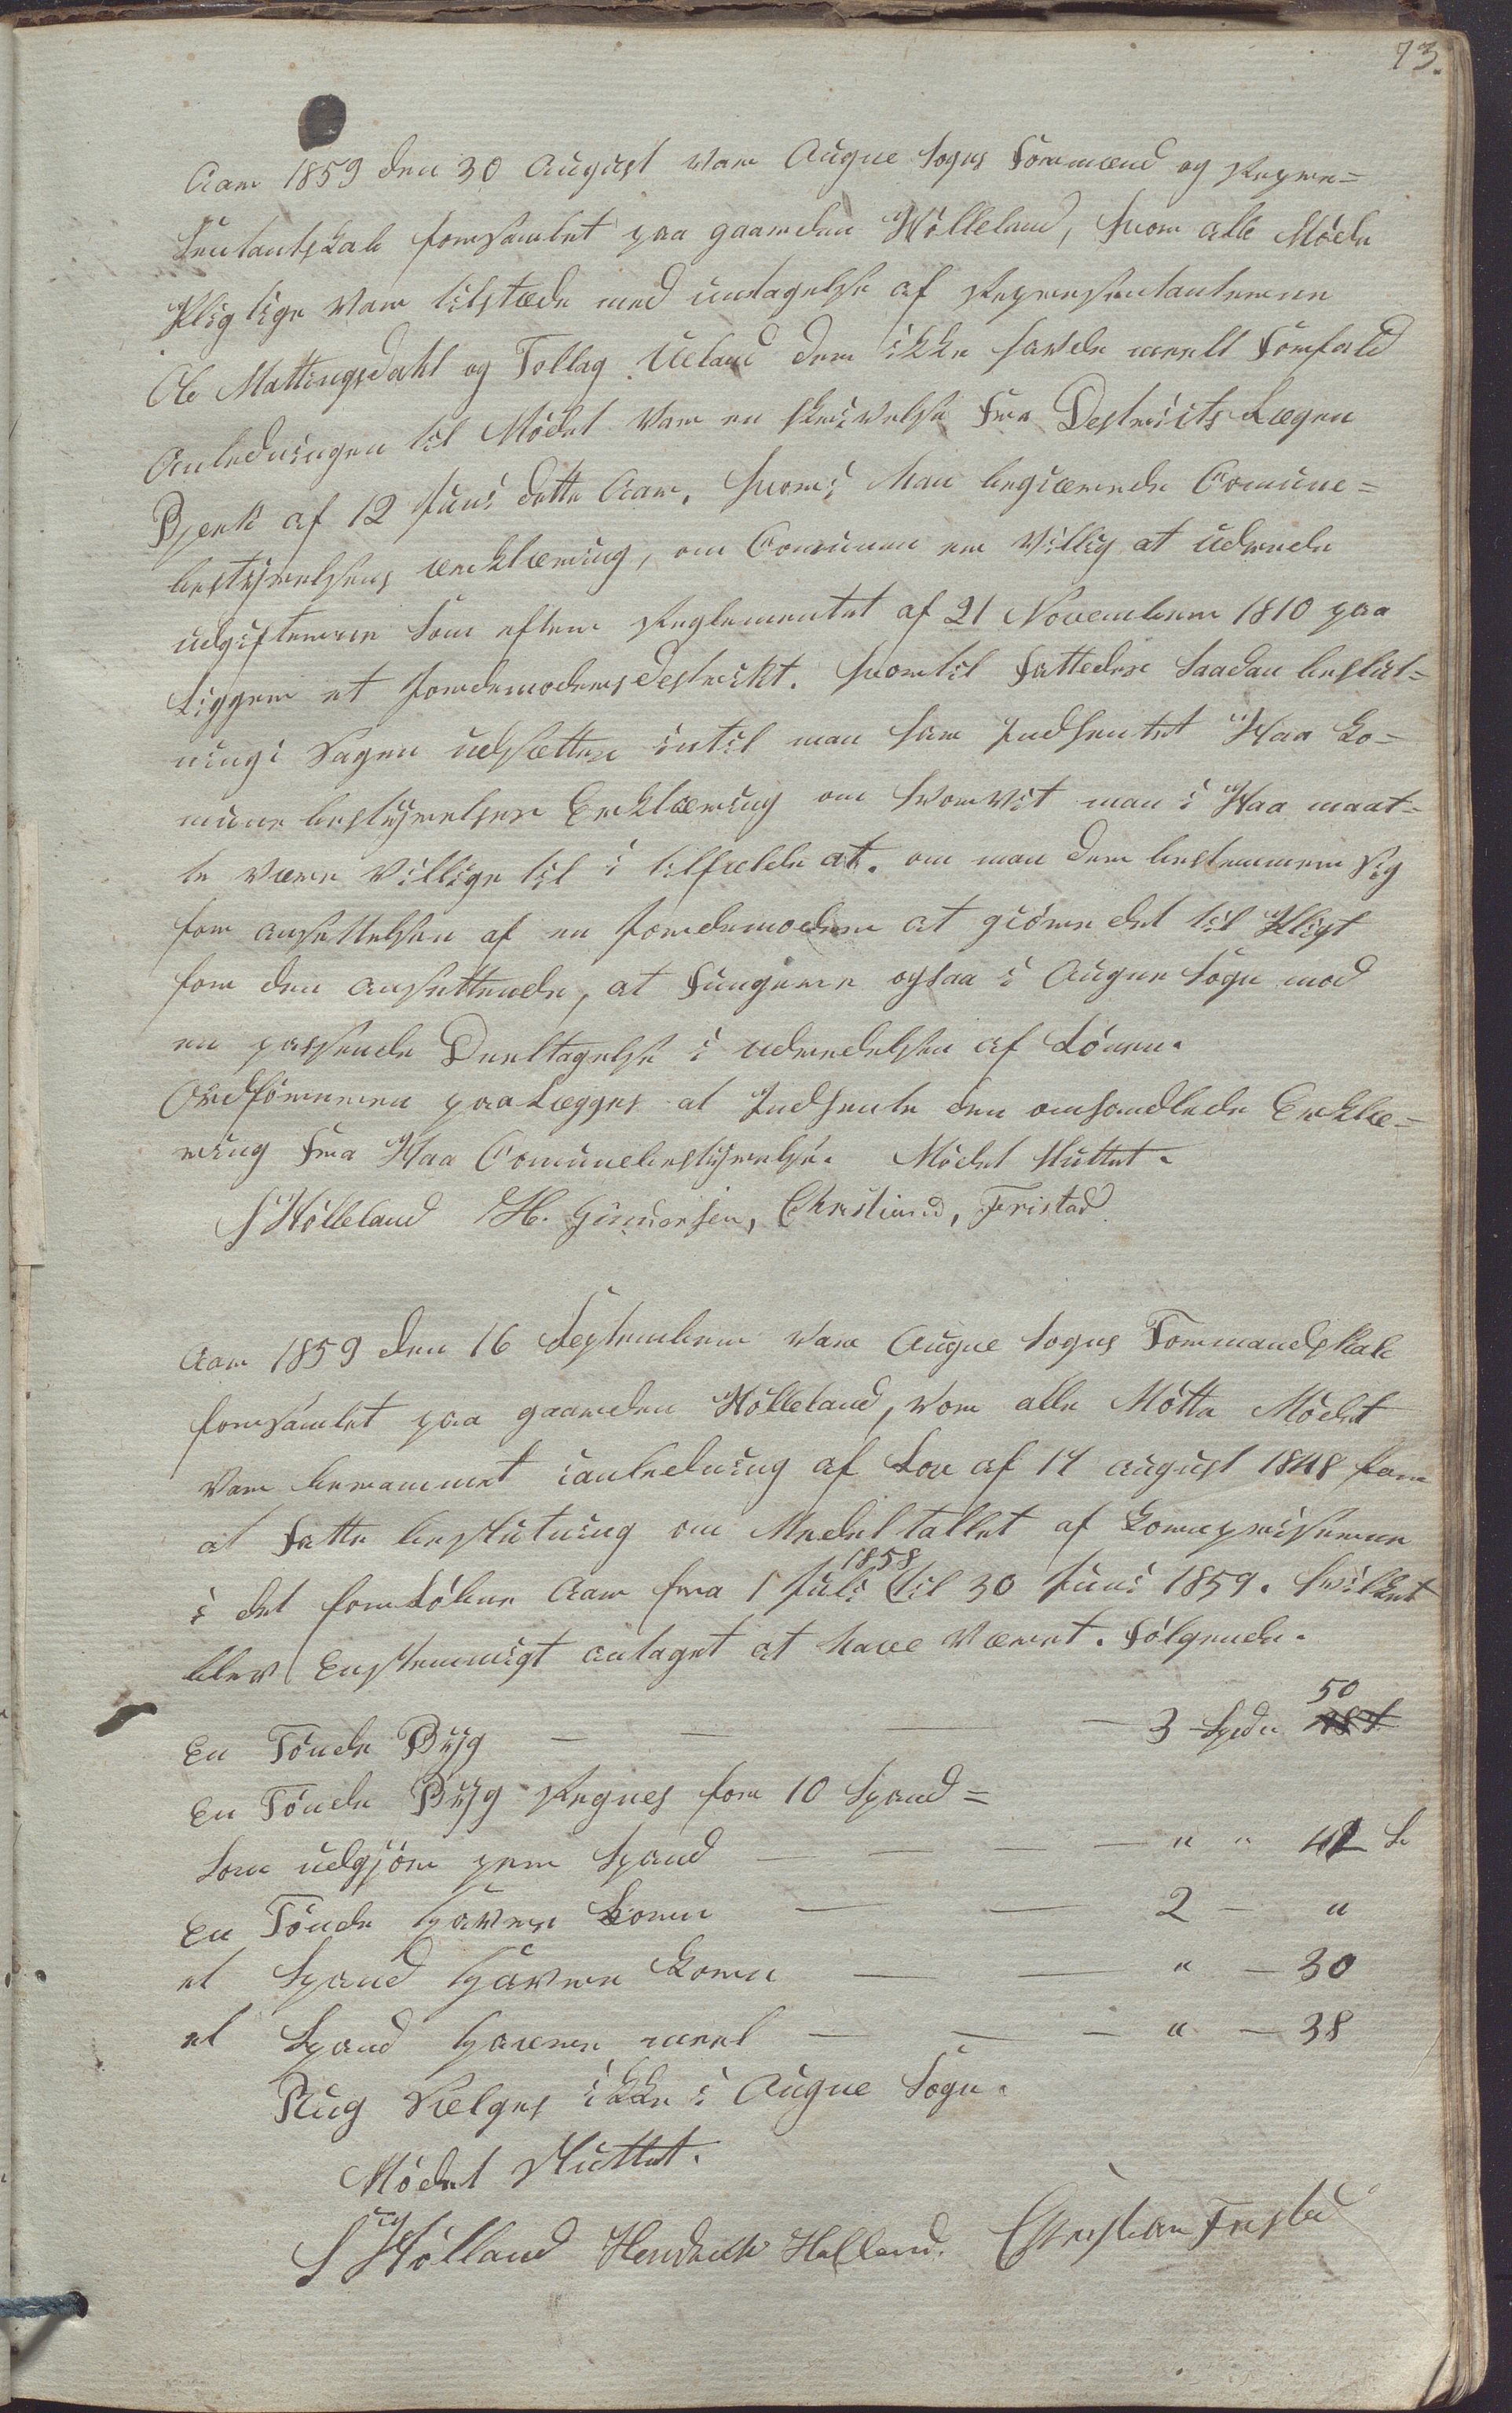 73.
Aar 1859 den 30 August var Augne Sogns Formænd og Repre=
sentantskab forsamlet paa gaarden Hölleland, hvor alle Möde
Pligtige var tilstæde med undtagelse af Representanterne
Ole Mattingsdahl og Tollag Ueland der ikke havde meelt Forfald
Anledningen til Mödet var en skrivelse fra Destricts Lægen
Bjerk af 12 Juni dette Aar, hvori han begiærede Comune=
bestyrelsens ærklæring, om Comunen er Villig at udrede
udgifterne som efter Reglementet af 21 November 1810 paa
Ligger et Jordemoders Destrikt. hvortil Fattedes saadan beslut=
ning: Sagen udsættes intil man har Indhentet Haa Ko=
mune bestyrelses Erklæring om hvorvit man i Haa maat=
te være Villige til i tilfælde at. om man der bestemmer Sig
for ansettelsen af en Jordemoder at giöre det til Pligt
for den ansettende, at Fungere ogsaa i Augne Sogn mod
en passende Deeltagelse i udredelsen af Lönen.
Ordföreren paaLægges at Indhente den omhandlede Erklæ=
ring fra Haa Comunebestyrelse. Mödet sluttet.
S Hölleland H. Gunnarsen, Christiand, Fristad
Aar 1859 den 16 September var Augne Sogns Formandskab
forsamlet paa gaarden Hölleland, vor alle Mötte Mödet
var berammet ianledning af Lov af 14 august 1848 for
at Fatte beslutning om Medeltallet af Kornpriserne
i det forLöbne Aar fra 1 Juli 1858 til 30 Juni 1859. hvilket
blev Enstemmigt antaget at have Været. Fölgende.
En Tönde Byg — — — — 3 Spdr 50
En Tönde Byg Regnes for 10 Spand =
som udgjör per Spand — — — — " " 42 s
En Tönde Havre Korn — — 2 — "
et Spand Havre Korn — — " — 30
et Spand Havre meel — — — " — 38
Rug Sælges ikke i Augne Sogn.
Mödet Sluttet.
S Hölland Hendrick Helland. Christian Fristad